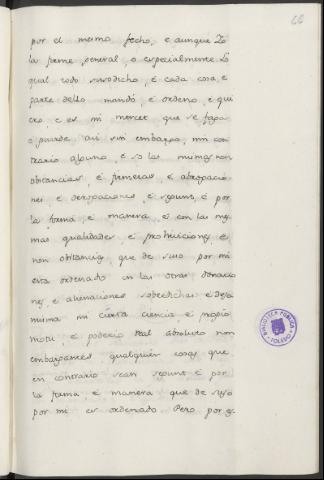 66
por el mesmo fecho, e aunque lo
la preme general, o especialmente lo
qual todo susodicho, é cada cosa, e
parte dello mandó, é ordenó, é qui
ero, e es mi merced que se faga
é guarde assi sin embargo, nin con
trario alguno e so las mismas non
obstancias, é firmezas, é abrogacio
nes é derogaciones é segunt, é por
la forma é manera é con las mes
mas qualidades é provisiones é
non obstancias que de suso por mi
está ordenado en las otras donacio
nes é alienaciones sobredichas é desa
misma mi cierta ciencia é propio
motu, é poderío real absoluto non
embargantes qualquier cosas que
en contrario sean segunt é por
la forma é manera que de suso
por mi es ordenado. Pero por q.
BIBLIOTECA PUBLICA
TOLEDO